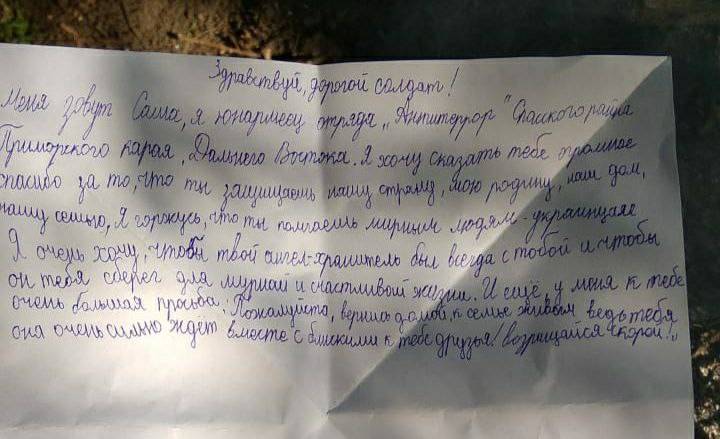 Здравствуй, дорогой солдат!
Меня зовут Саша, я юнармеец отряда „Антитеррор" Спасского района
Приморского карая, Дальнего Востока. Я хочу сказать тебе огромное
спасибо за то, что ты защищаешь нашу страну, мою родину, наш дом,
нашу семью, Я горжусь, что ты помгаешь мирным людям - украинцам
Я очень хочу, чтобы твой ангел-хранитель был всегда с тобой и чтобы
он тебя сберег для мирной и счастливой жизни. И ещё, у меня к тебе
очень большая просьба. Пожалуйста, вернись домой, к семье живым ведь тебя
она очень сильно ждёт вместе с близкими к тебе друзья! возращайся скорой!„